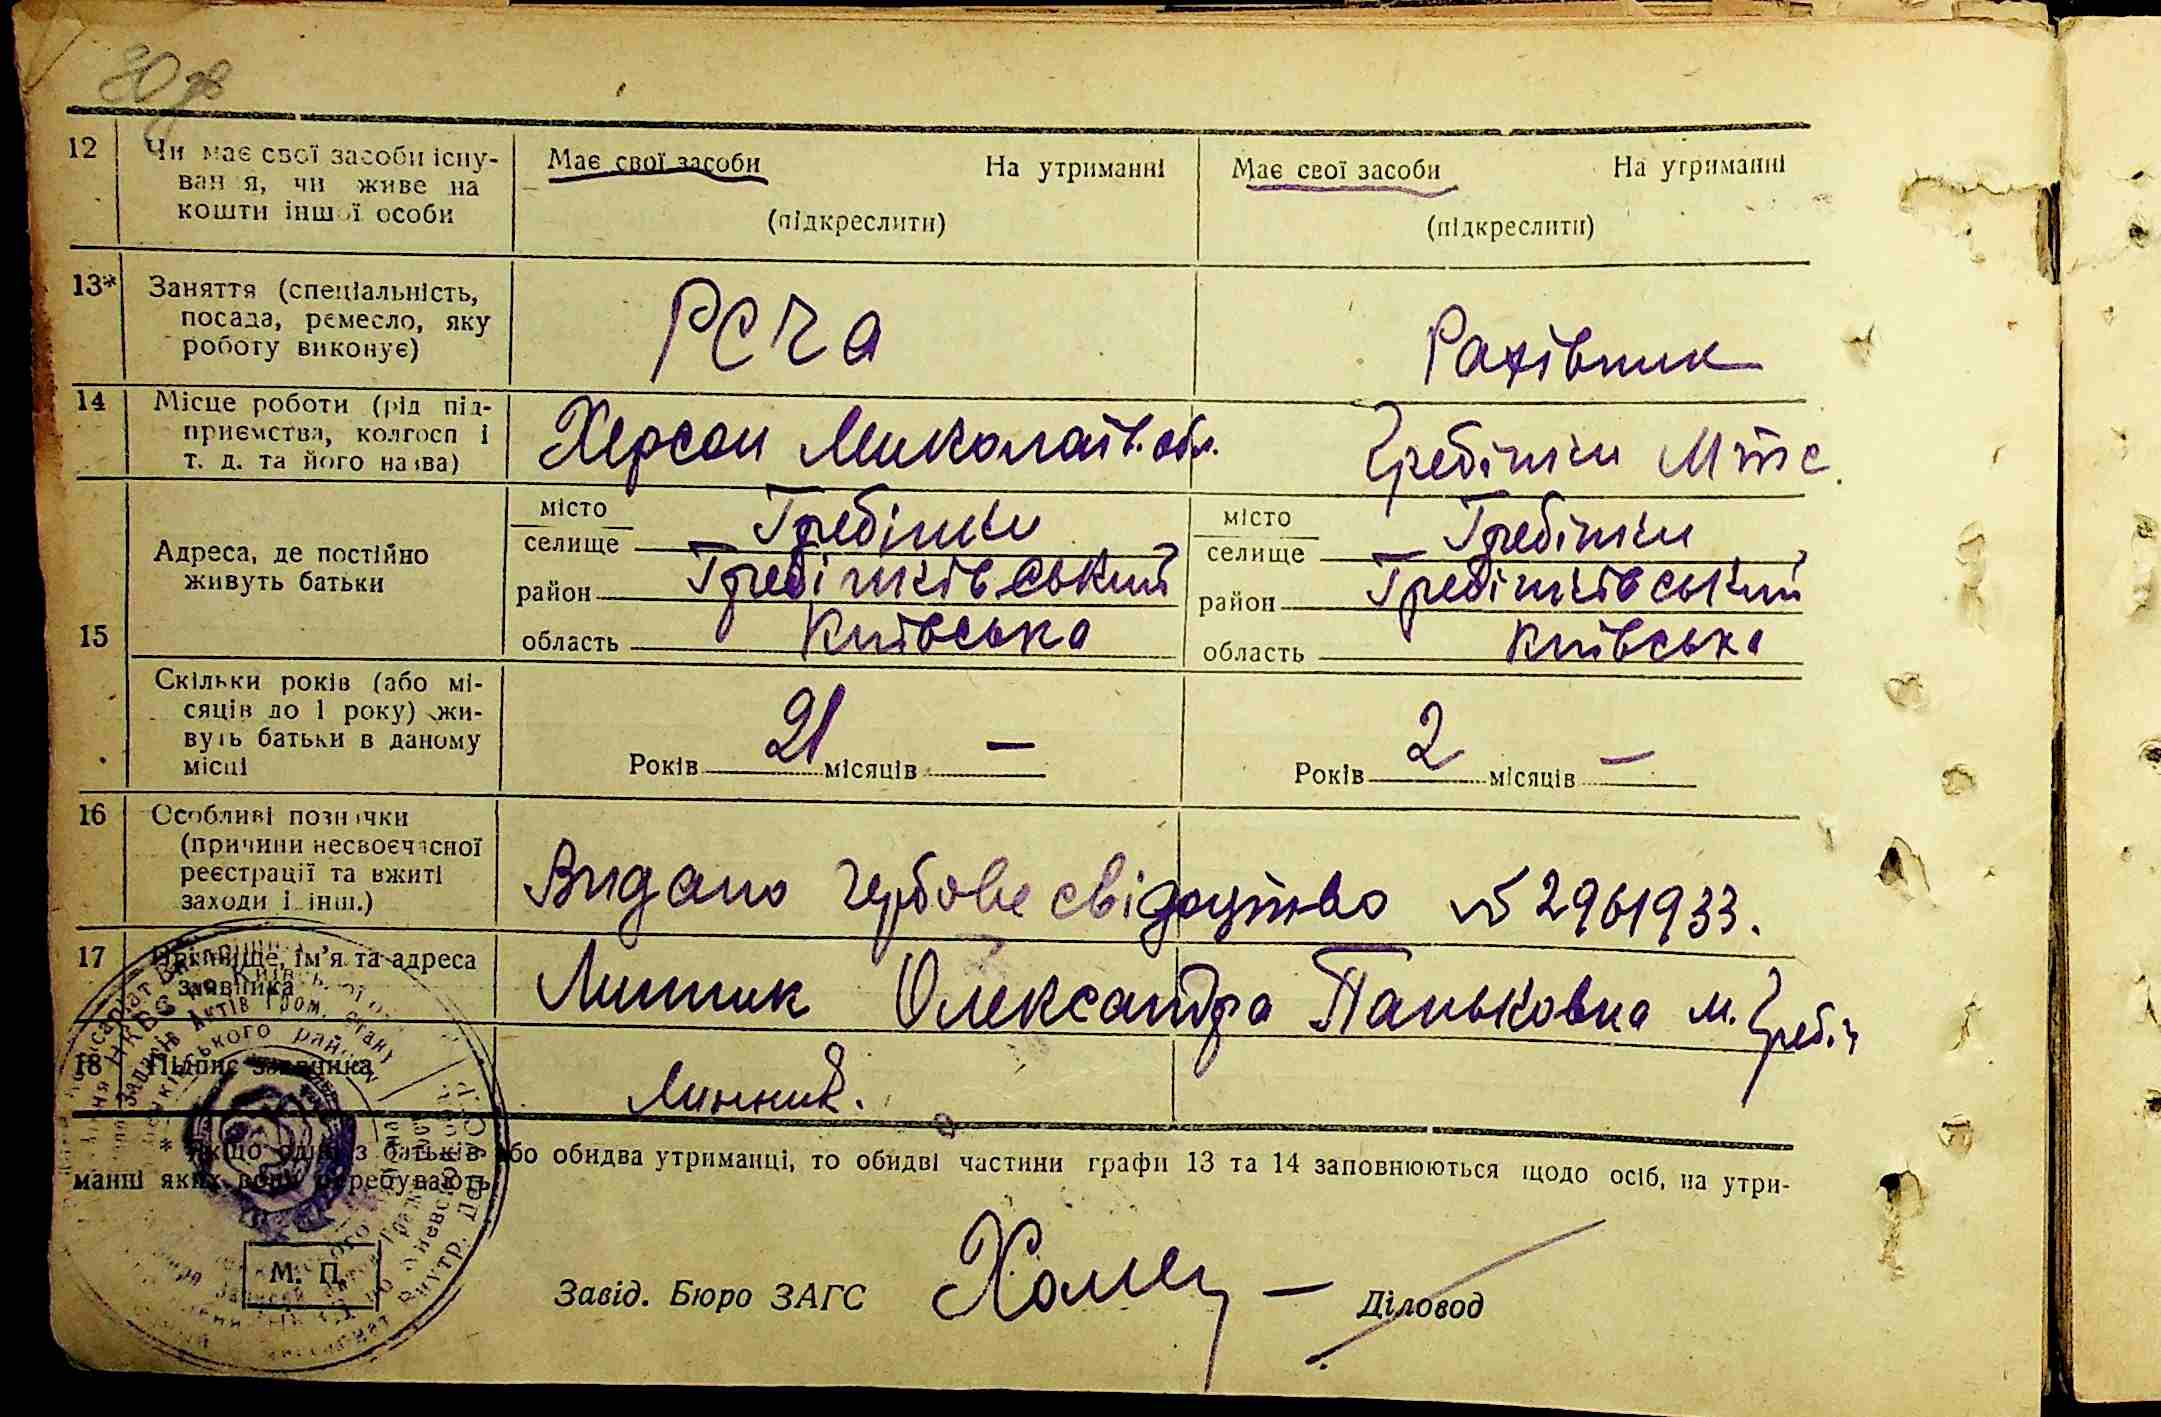 80 зв
12 Чи має свої засоби існу-
вання, чи живе на
кошти іншої особи
Має свої засоби На утриманні
(підкреслити)
Має свої засоби На утриманні
(підкреслити)
13* Заняття (спеціальність,
посада, ремесло, яку
роботу виконує)
РСЧА
Рахівник
14 Місце роботи (рід під-
приємства, колгосп і
т. д. та його назва)
Херсон Миколаїв. обл.
Гребінки Мтс.
15 Адреса, де постійно
живуть батьки
місто
селище Гребінки
район Гребінківський
область Київська
місто
селище Гребінки
район Гребінківський
область Київська
Скільки років (або мі-
сяців до 1 року) жи-
вуть батьки в даному
місці
Років 21 місяців —
Років 2 місяців —
16 Особливі позначки
(причини несвоєчасної
реєстрації та вжиті
заходи і інш.)
Видано гербове свідоцтво № 2961933.
17 Прізвище, ім'я та адреса
заявника
Линник Олександра Паньковна м. Гребін
18 Підпис заявника
Линник.
* Якщо один з батьків або обидва утриманці, то обидві частини графи 13 та 14 заповнюються щодо осіб, на утри-
манні яких вони перебувають
М. П.
Завід. Бюро ЗАГС
Діловод